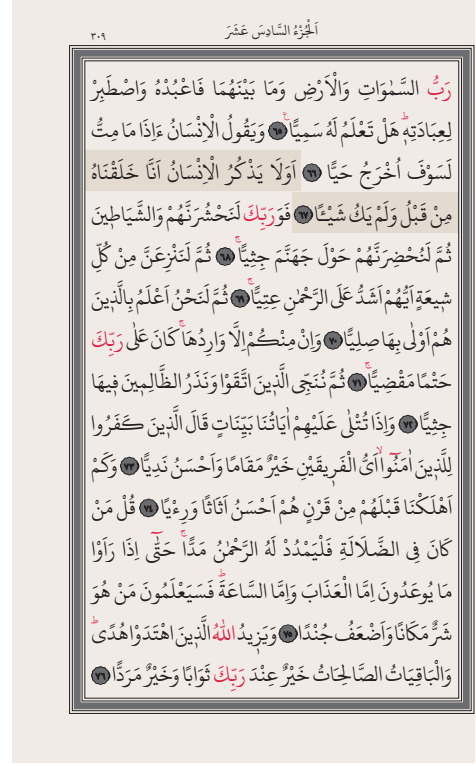 ٣٠٩
اَلْجُزْءُ السَّادِسَ عَشَرَ
رَبُّ السَّمٰوَاتِ وَالْاَرْضِ وَمَا بَيْنَهُمَا فَاعْبُدْهُ وَاصْطَبِرْ
لِعِبَادَتِهٖۜ هَلْ تَعْلَمُ لَهُ سَمِيًّاۚ ٦٥ وَيَقُولُ الْاِنْسَانُ ءَاِذَا مَا مِتُّ
لَسَوْفَ اُخْرَجُ حَيًّا ٦٦ اَوَلَا يَذْكُرُ الْاِنْسَانُ اَنَّا خَلَقْنَاهُ
مِنْ قَبْلُ وَلَمْ يَكُ شَيْـًٔا ٦٧ فَوَرَبِّكَ لَنَحْشُرَنَّهُمْ وَالشَّيَاطٖينَ
ثُمَّ لَنُحْضِرَنَّهُمْ حَوْلَ جَهَنَّمَ جِثِيًّاۚ ٦٨ ثُمَّ لَنَنْزِعَنَّ مِنْ كُلِّ
شٖيعَةٍ اَيُّهُمْ اَشَدُّ عَلَى الرَّحْمٰنِ عِتِيًّاۚ ٦٩ ثُمَّ لَنَحْنُ اَعْلَمُ بِالَّذٖينَ
هُمْ اَوْلٰى بِهَا صِلِيًّا ٧٠ وَاِنْ مِنْكُمْ اِلَّا وَارِدُهَاۚ كَانَ عَلٰى رَبِّكَ
حَتْمًا مَقْضِيًّاۚ ٧١ ثُمَّ نُنَجِّى الَّذٖينَ اتَّقَوْا وَنَذَرُ الظَّالِمٖينَ فٖيهَا
جِثِيًّا ٧٢ وَاِذَا تُتْلٰى عَلَيْهِمْ اٰيَاتُنَا بَيِّنَاتٍ قَالَ الَّذٖينَ كَفَرُوا
لِلَّذٖينَ اٰمَنُٓواۙ اَىُّ الْفَرٖيقَيْنِ خَيْرٌ مَقَامًا وَاَحْسَنُ نَدِيًّا ٧٣ وَكَمْ
اَهْلَكْنَا قَبْلَهُمْ مِنْ قَرْنٍ هُمْ اَحْسَنُ اَثَاثًا وَرِءْيًا ٧٤ قُلْ مَنْ
كَانَ فِى الضَّلَالَةِ فَلْيَمْدُدْ لَهُ الرَّحْمٰنُ مَدًّاۚ حَتّٰٓى اِذَا رَاَوْا
مَا يُوعَدُونَ اِمَّا الْعَذَابَ وَاِمَّا السَّاعَةَۜ فَسَيَعْلَمُونَ مَنْ هُوَ
شَرٌّ مَكَانًا وَاَضْعَفُ جُنْدًا ٧٥ وَيَزٖيدُ اللّٰهُ الَّذٖينَ اهْتَدَوْا هُدًىۜ
وَالْبَاقِيَاتُ الصَّالِحَاتُ خَيْرٌ عِنْدَ رَبِّكَ ثَوَابًا وَخَيْرٌ مَرَدًّا ٧٦